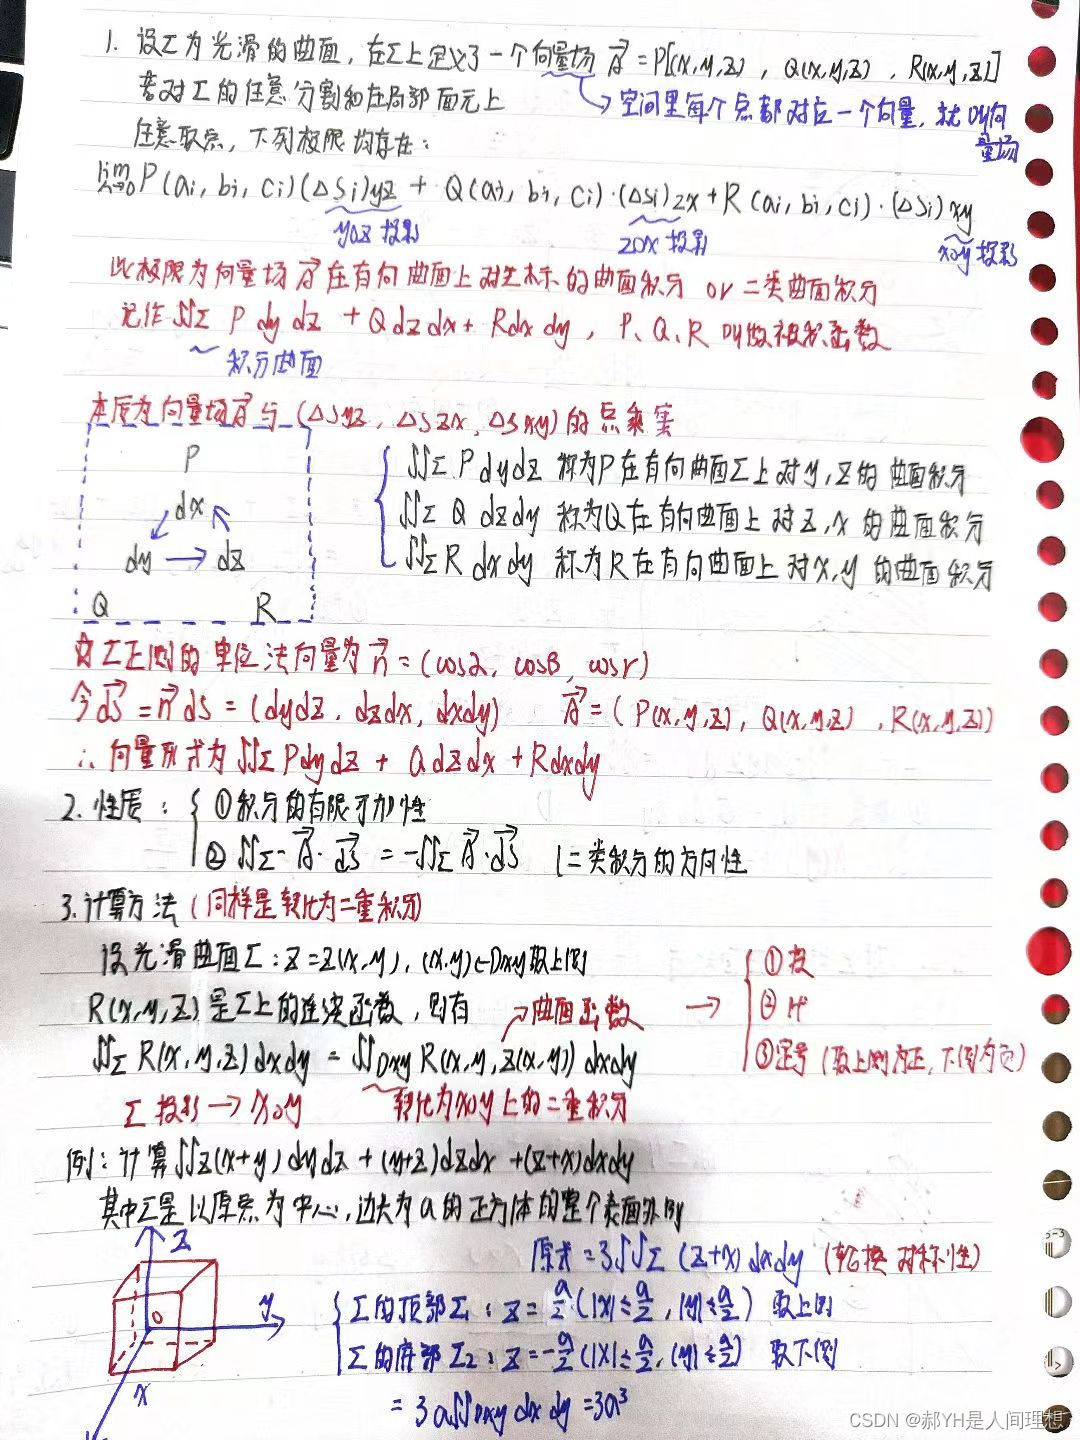 1. 设Σ为光滑的曲面,在Σ上定义了一个向量场 A⃗ = P[(x,y,z) , Q(x,y,z) , R(x,y,z)]
若对Σ的任意分割和在局部面元上
→ 空间里每个点都对应一个向量,就叫向量场
任意取点,下列极限均存在:
lim λ→0 P(ai, bi, ci)(ΔSi)yz + Q(ai, bi, ci)·(ΔSi)zx + R(ai, bi, ci)·(ΔSi)xy
yoz投影 zox投影 xoy投影
此极限为向量场 A⃗ 在有向曲面上对坐标的曲面积分 or 二类曲面积分
记作 ∬Σ P dy dz + Q dz dx + R dx dy , P、Q、R 叫做被积函数
积分曲面
本质为向量场A⃗与 (ΔSyz, ΔSzx, ΔSxy) 的点乘
P
dx
dy → dz
Q R
∬Σ P dydz 称为P在有向曲面Σ上对y,z的曲面积分
∬Σ Q dzdy 称为Q在有向曲面上对z,x的曲面积分
∬Σ R dxdy 称为R在有向曲面上对x,y的曲面积分
☆Σ正侧的单位法向量为 n⃗ = (cosα, cosβ, cosr)
令dS⃗ = n⃗ ds = (dydz, dzdx, dxdy) A⃗ = (P(x,y,z), Q(x,y,z), R(x,y,z))
∴ 向量形式为 ∬Σ Pdydz + Qdzdx + Rdxdy
2. 性质: ①积分的有限可加性
② ∬Σ- A⃗·dS⃗ = -∬Σ A⃗·dS⃗ (二类积分的方向性
3. 计算方法(同样是转化为二重积分)
设光滑曲面Σ: z=z(x,y), (x,y)∈Dxy取上侧
R(x,y,z)是Σ上的连续函数,则有
→曲面函数
∬Σ R(x,y,z)dxdy = ∬Dxy R(x,y,z(x,y)) dxdy
→ ①投
②代
③定号(取上侧为正,下侧为负)
Σ投影→xoy 转化为xoy上的二重积分
例:计算∬Σ(x+y)dydz + (y+z)dzdx + (z+x)dxdy
其中Σ是以原点为中心,边长为a的正方体的整个表面外侧
z
o
y
x
原式 = 3∬Σ (z+x)dxdy (轮换对称性)
Σ的顶部Σ1: z = a/2 (|x|≤a/2, |y|≤a/2) 取上侧
Σ的底部Σ2: z = -a/2 (|x|≤a/2, |y|≤a/2) 取下侧
= 3a∬Dxy dxdy = 3a³
CSDN @郝YH是人间理想